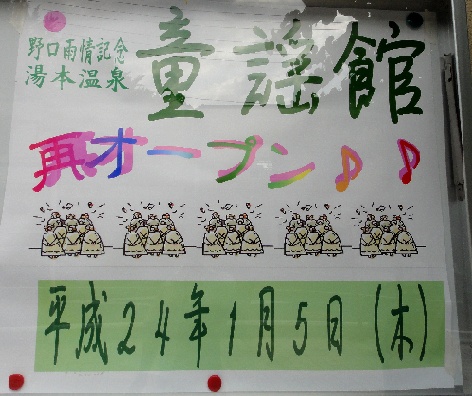 野口雨情記念
湯本温泉
童謡館
再オープン♪♪
平成24年1月5日(木)